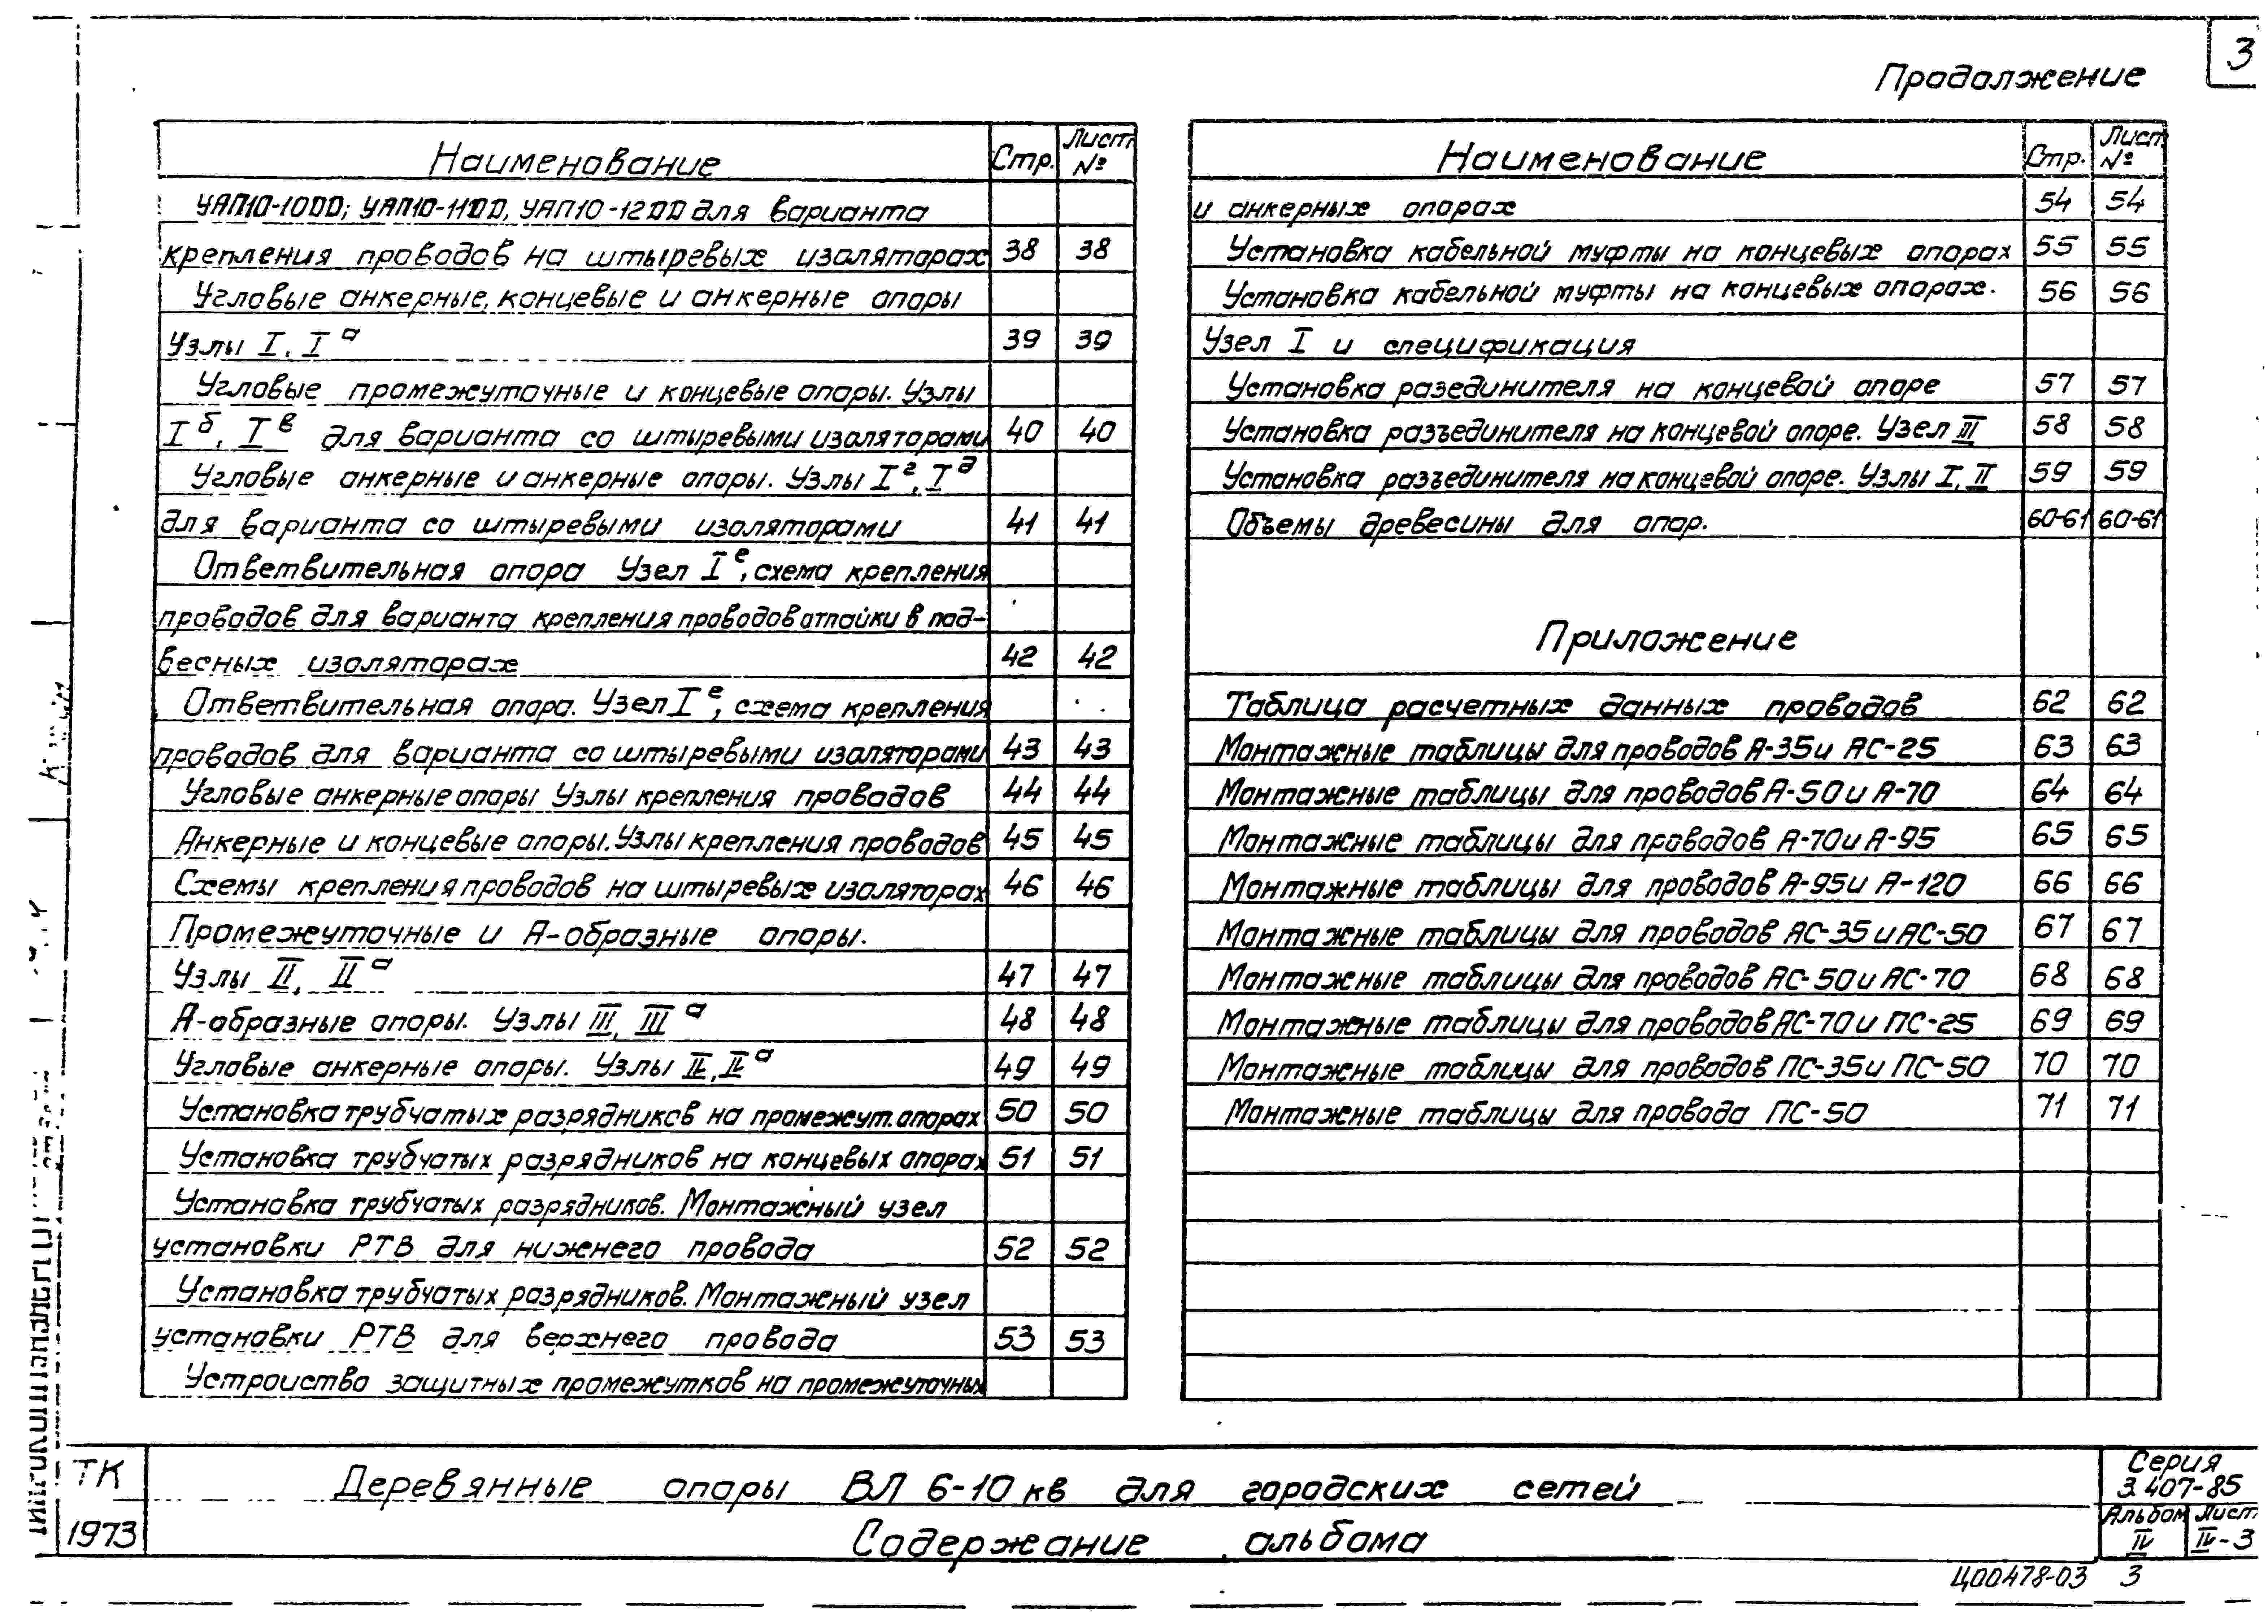 3
Продолжение
Наименование Стр. Лист №
УАП10-10DD; УАП10-11DD, УАП10-12DD для варианта
крепления проводов на штыревых изоляторах 38 38
Угловые анкерные, концевые и анкерные опоры
Узлы I, I а 39 39
Угловые промежуточные и концевые опоры. Узлы
I б, I в для варианта со штыревыми изоляторами 40 40
Угловые анкерные и анкерные опоры. Узлы I г, I д
для варианта со штыревыми изоляторами 41 41
Ответвительная опора Узел I е, схема крепления
проводов для варианта крепления проводов отпайки в под-
весных изоляторах 42 42
Ответвительная опора. Узел I е, схема крепления
проводов для варианта со штыревыми изоляторами 43 43
Угловые анкерные опоры Узлы крепления проводов 44 44
Анкерные и концевые опоры. Узлы крепления проводов 45 45
Схемы крепления проводов на штыревых изоляторах 46 46
Промежуточные и А-образные опоры.
Узлы II, II а 47 47
А-образные опоры. Узлы III, III а 48 48
Угловые анкерные опоры. Узлы II, II а 49 49
Установка трубчатых разрядников на промежут. опорах 50 50
Установка трубчатых разрядников на концевых опорах 51 51
Установка трубчатых разрядников. Монтажный узел
установки РТВ для нижнего провода 52 52
Установка трубчатых разрядников. Монтажный узел
установки РТВ для верхнего провода 53 53
Устроиство защитных промежутков на промежуточных
Наименование Стр. Лист №
и анкерных опорах 54 54
Установка кабельной муфты на концевых опорах 55 55
Установка кабельной муфты на концевых опорах. 56 56
Узел I и спецификация
Установка разединителя на концевой опоре 57 57
Установка разъединителя на концевой опоре. Узел III 58 58
Установка разъединителя на концевой опоре. Узлы I, II 59 59
Объемы древесины для опор. 60-61 60-61
Приложение
Таблица расчетных данных проводов 62 62
Монтажные таблицы для проводов А-35 и АС-25 63 63
Монтажные таблицы для проводов А-50 и А-70 64 64
Монтажные таблицы для проводов А-70 и А-95 65 65
Монтажные таблицы для проводов А-95 и А-120 66 66
Монтажные таблицы для проводов АС-35 и АС-50 67 67
Монтажные таблицы для проводов АС-50 и АС-70 68 68
Монтажные таблицы для проводов АС-70 и ПС-25 69 69
Монтажные таблицы для проводов ПС-35 и ПС-50 70 70
Монтажные таблицы для провода ПС-50 71 71
ТК
1973
Деревянные опоры ВЛ 6-10 кв для городских сетей
Содержание альбома
Серия
3.407-85
Альбом Лист
IV IV-3
Ц00478-03 3